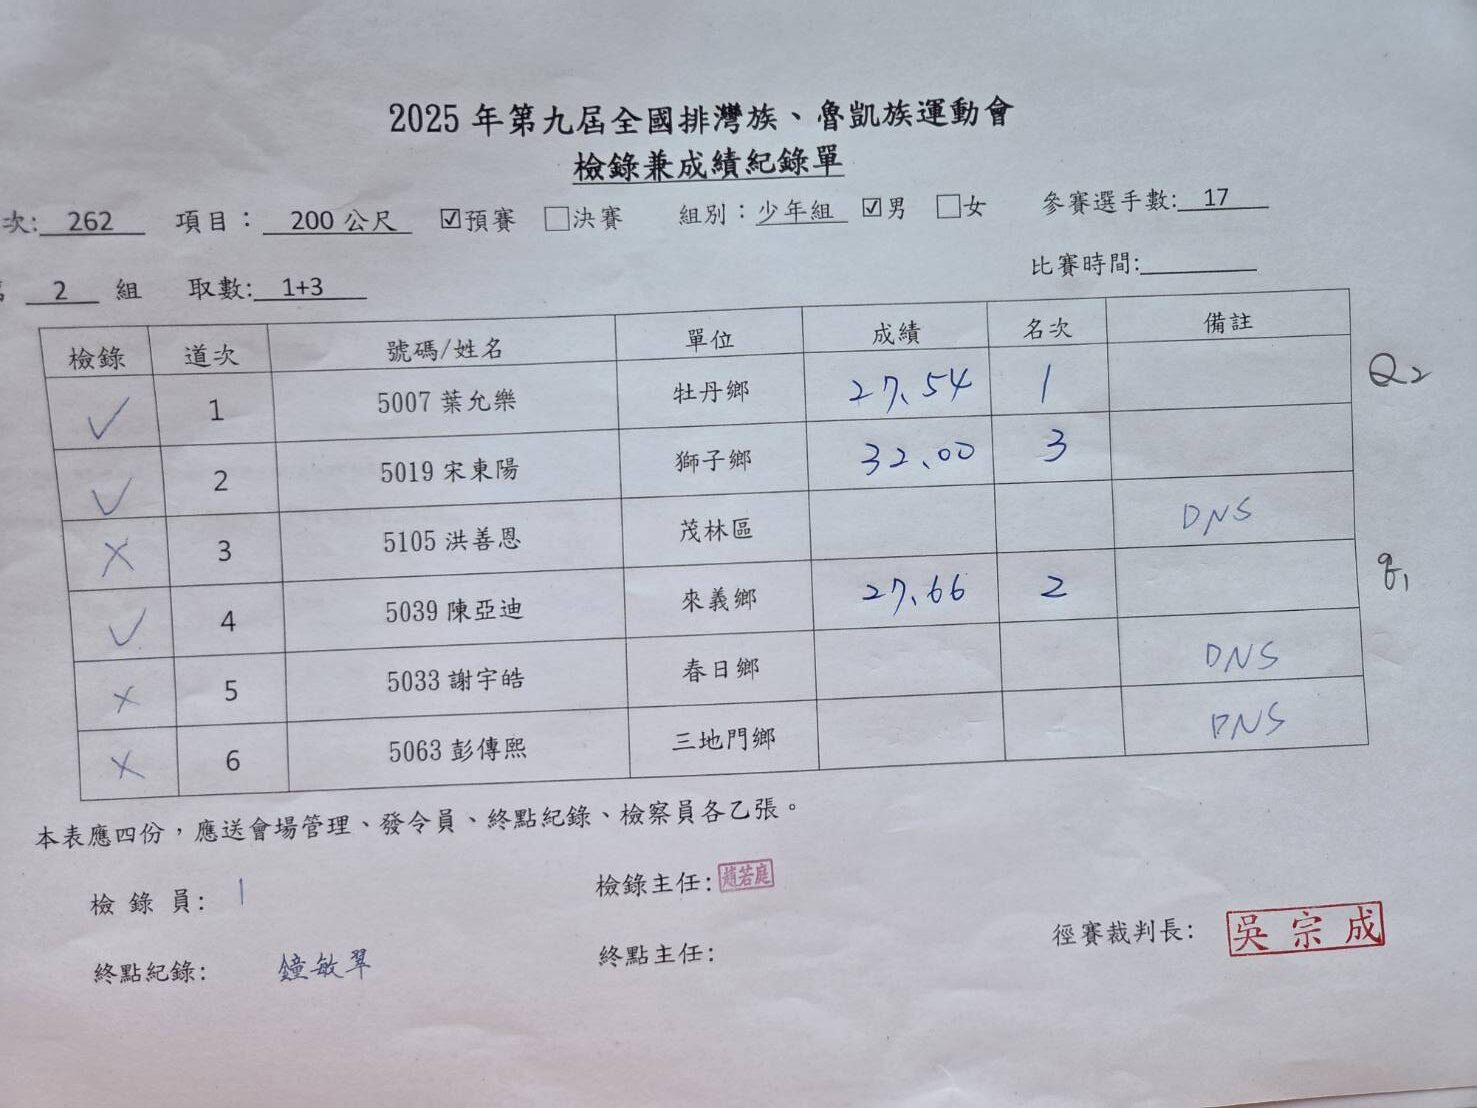 2025 年第九屆全國排灣族、魯凱族運動會
檢錄兼成績紀錄單
次: 262 項目： 200 公尺 ☑預賽 □決賽 組別：少年組 ☑男 □女 參賽選手數: 17
2 組 取數: 1+3 比賽時間:
檢錄 道次 號碼/姓名 單位 成績 名次 備註
✓ 1 5007 葉允樂 牡丹鄉 27.54 1 Q2
✓ 2 5019 宋東陽 獅子鄉 32.00 3
X 3 5105 洪善恩 茂林區 DNS
✓ 4 5039 陳亞迪 來義鄉 27.66 2 q1
X 5 5033 謝宇皓 春日鄉 DNS
X 6 5063 彭傳熙 三地門鄉 DNS
本表應四份，應送會場管理、發令員、終點紀錄、檢察員各乙張。
檢 錄 員: 檢錄主任: 趙若庭
徑賽裁判長: 吳宗成
終點紀錄: 鐘敏翠 終點主任: